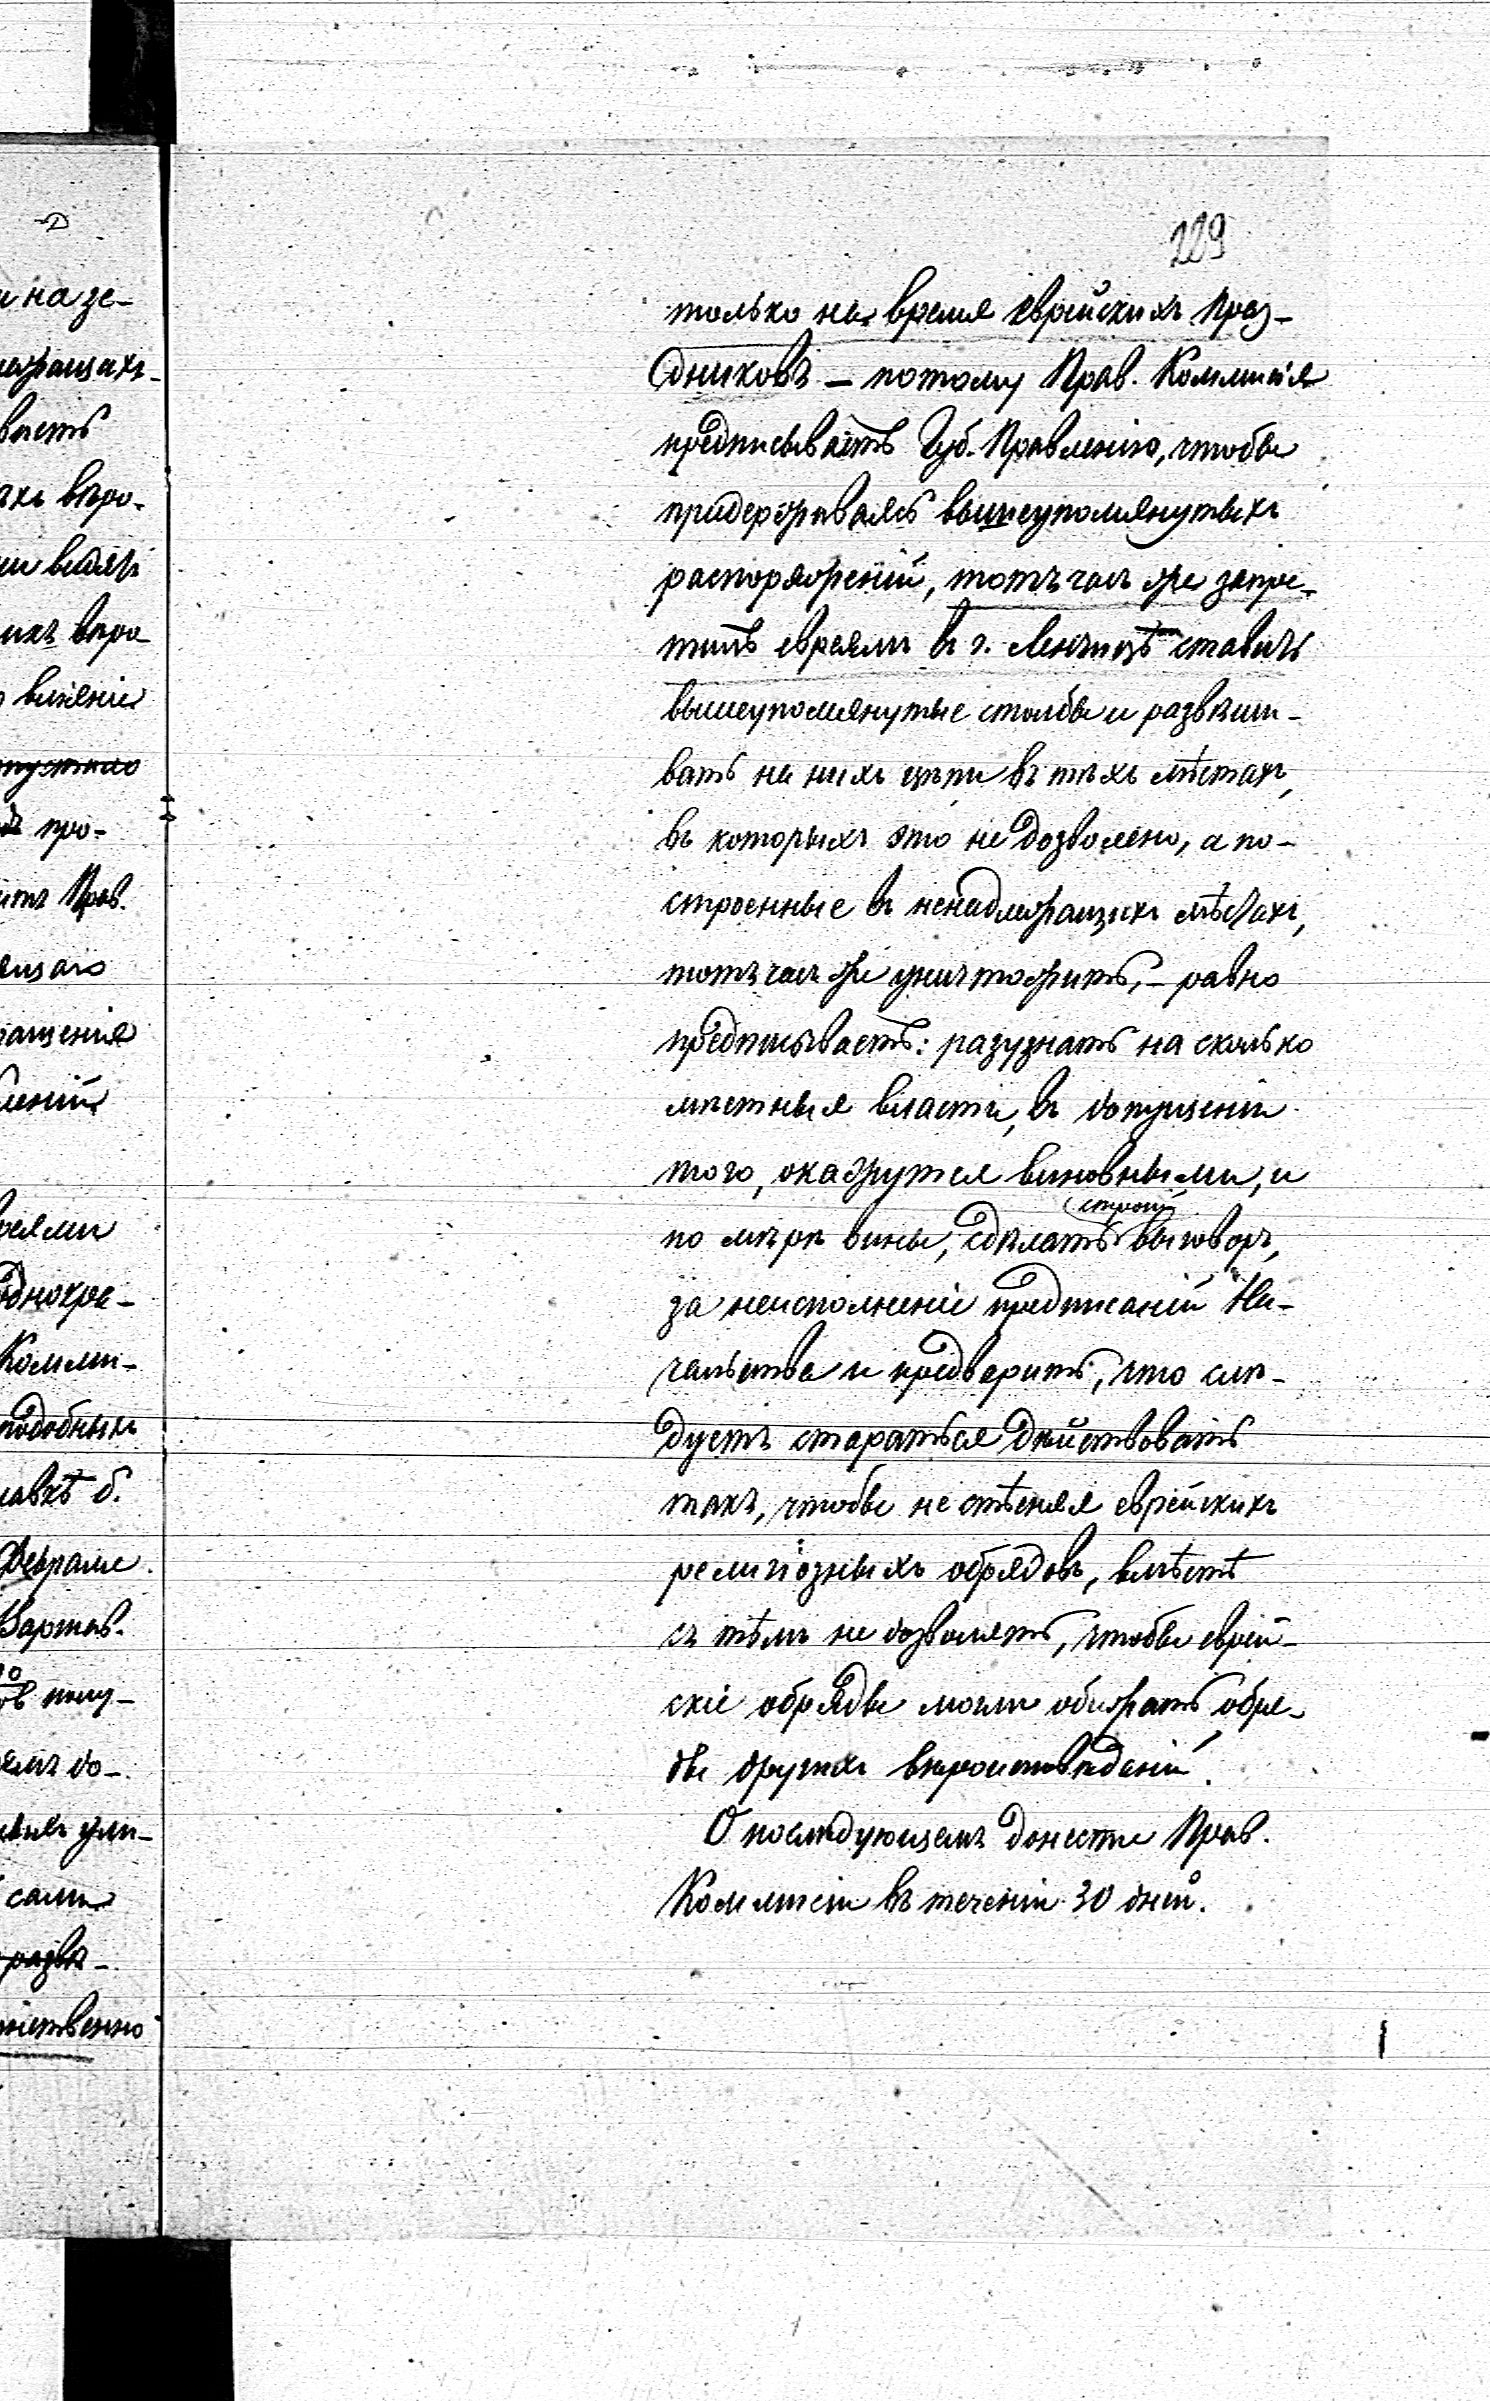 229
только на время еврейскихъ праз-
дниковъ – потому Прав. Коммисія
предписываетъ Губ. Правленію, чтобы
придерживаясь вышеупомянутыхъ
распоряженій, тотъ часъ же запре-
тить евреямъ въ г. Ленчицѣ ставить
вышеупомянутые столбы и развѣши-
вать на нихъ цѣпи въ тѣхъ мѣстахъ,
въ которыхъ это не дозволено, а по-
строенные въ ненадлежащихъ мѣстахъ,
тотъ часъ же уничтожить, – равно
предписываетъ: разузнать на сколько
мѣстныя власти, въ допущеніи
того, окажутся виновными, и
строгій
по мѣрѣ вины, сдѣлать выговоръ,
за неисполненіе предписаній На-
чальства и предварить, что слѣ-
дуетъ стараться дѣйствовать
такъ, чтобы не стѣсняя еврейскихъ
религіозныхъ обрядовъ, вмѣстѣ
съ тѣмъ не дозволять, чтобы еврей-
скіе обряды могли обижать обря-
ды другихъ вѣроисповѣданій.
О послѣдующемъ донести Прав.
Коммисіи въ теченіи 30 дней.
и на зе-
вѣро-
вліяніе
про-
Прав.
Комми-
подобныхъ
Февраля
Варшав.
до-
сами
развѣ-